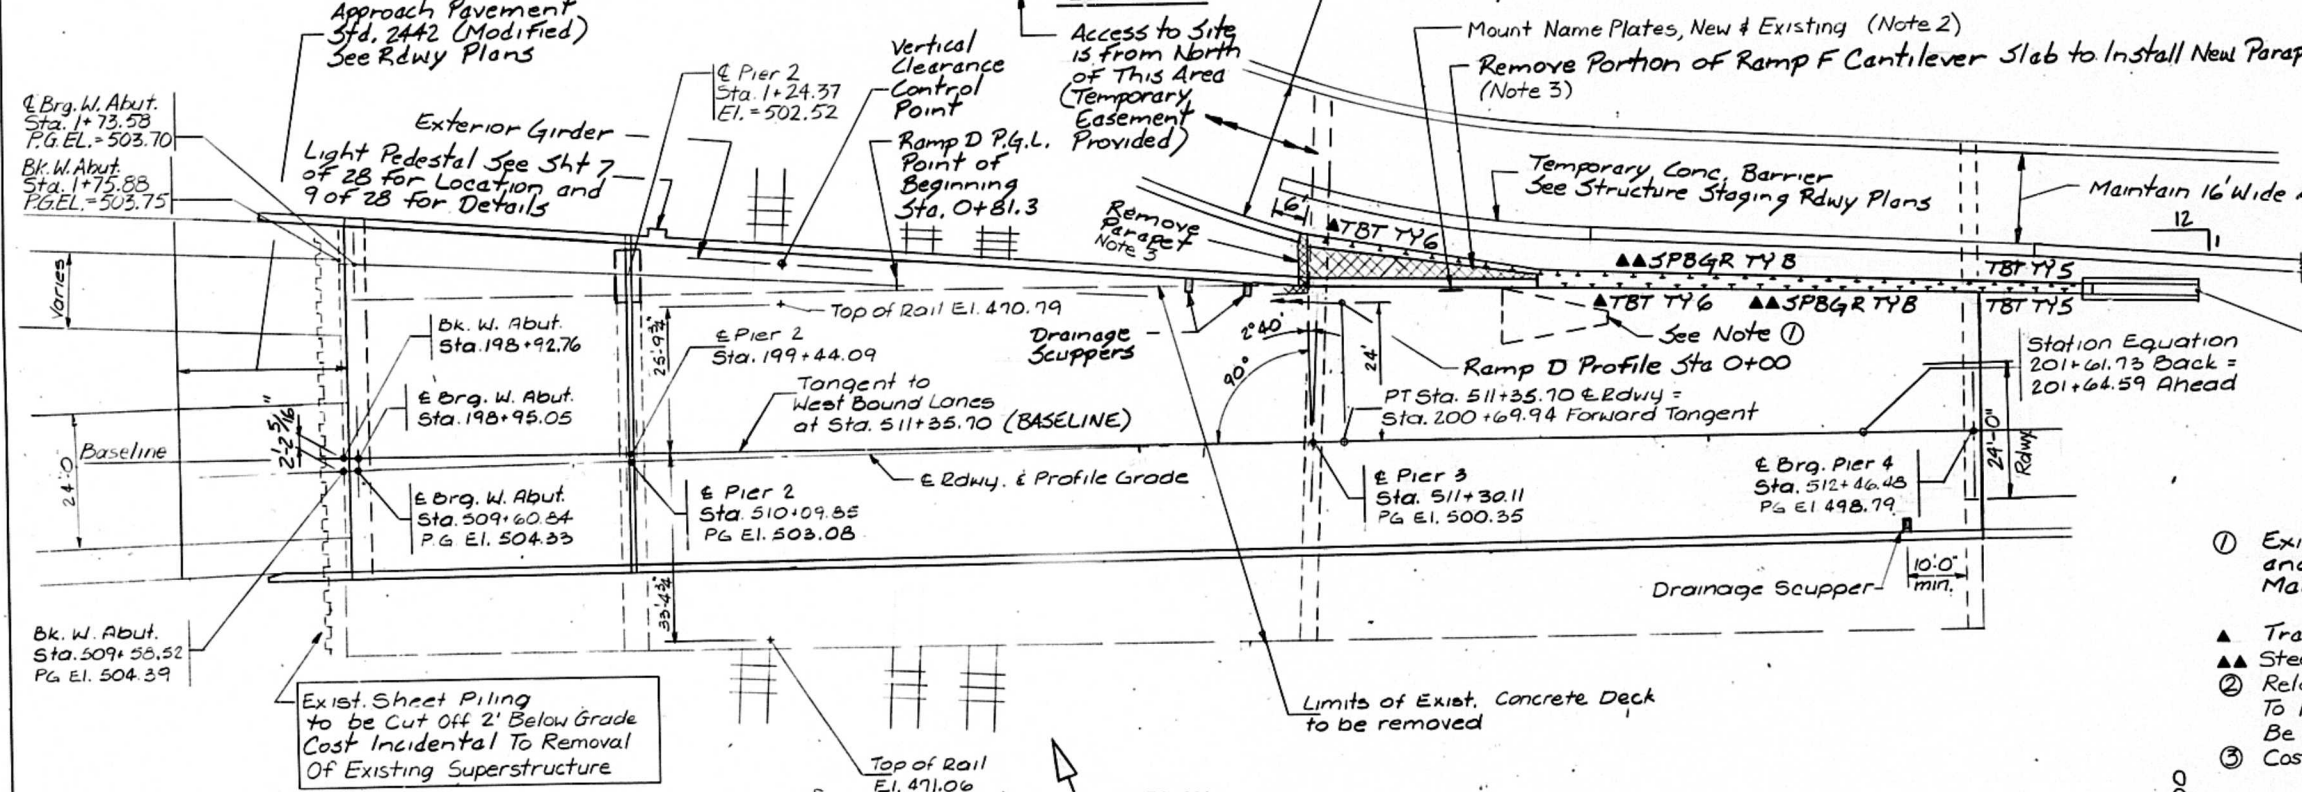 Approach Pavement
Std. 2442 (Modified)
See Rdwy Plans
℄ Brg. W. Abut.
Sta. 1+73.58
P.G. EL.=503.70
Bk. W. Abut.
Sta. 1+75.88
P.G. EL.=503.75
Exterior Girder
Light Pedestal See Sht 7
of 28 for Location and
9 of 28 for Details
℄ Pier 2
Sta. 1+24.37
El.=502.52
Vertical
Clearance
Control
Point
Ramp D P.G.L.
Point of
Beginning
Sta. 0+81.3
Access to Site
is from North
of This Area
(Temporary
Easement
Provided)
Mount Name Plates, New & Existing (Note 2)
Remove Portion of Ramp F Cantilever Slab to Install New Parap
(Note 3)
Temporary Conc. Barrier
See Structure Staging Rdwy Plans
Maintain 16' Wide
12
1
Remove
Parapet
Note 3
6'
▲TBT TY6
▲▲SPBGR TY B
TBT TY5
▲TBT TY6
▲▲SPBGR TYB
TBT TY5
Varies
Top of Rail El. 470.79
Bk. W. Abut.
Sta. 198+92.76
25'-9¾"
℄ Pier 2
Sta. 199+44.09
Drainage
Scuppers
2°40'
90°
24'
See Note ①
Ramp D Profile Sta 0+00
Station Equation
201+61.73 Back =
201+64.59 Ahead
℄ Brg. W. Abut.
Sta. 198+95.05
Tangent to
West Bound Lanes
at Sta. 511+35.70 (BASELINE)
PT Sta. 511+35.70 ℄ Rdwy =
Sta. 200+69.94 Forward Tangent
2'-2 5/16"
Baseline
24'-0
℄ Rdwy. & Profile Grade
24'-0"
Rdwy
℄ Brg. W. Abut.
Sta. 509+60.84
P.G. El. 504.33
℄ Pier 2
Sta. 510+09.85
PG El. 503.08
℄ Pier 3
Sta. 511+30.11
PG El. 500.35
℄ Brg. Pier 4
Sta. 512+46.48
PG El 498.79
33'-4¾"
Drainage Scupper
10'-0"
min.
Bk. W. Abut.
Sta. 509+58.52
PG El. 504.39
Exist. Sheet Piling
to be Cut Off 2' Below Grade
Cost Incidental To Removal
Of Existing Superstructure
Limits of Exist. Concrete Deck
to be removed
Top of Rail
El. 471.06
① Exi
and
Ma
▲ Tra
▲▲ Stee
② Relo
To
Be
③ Cos